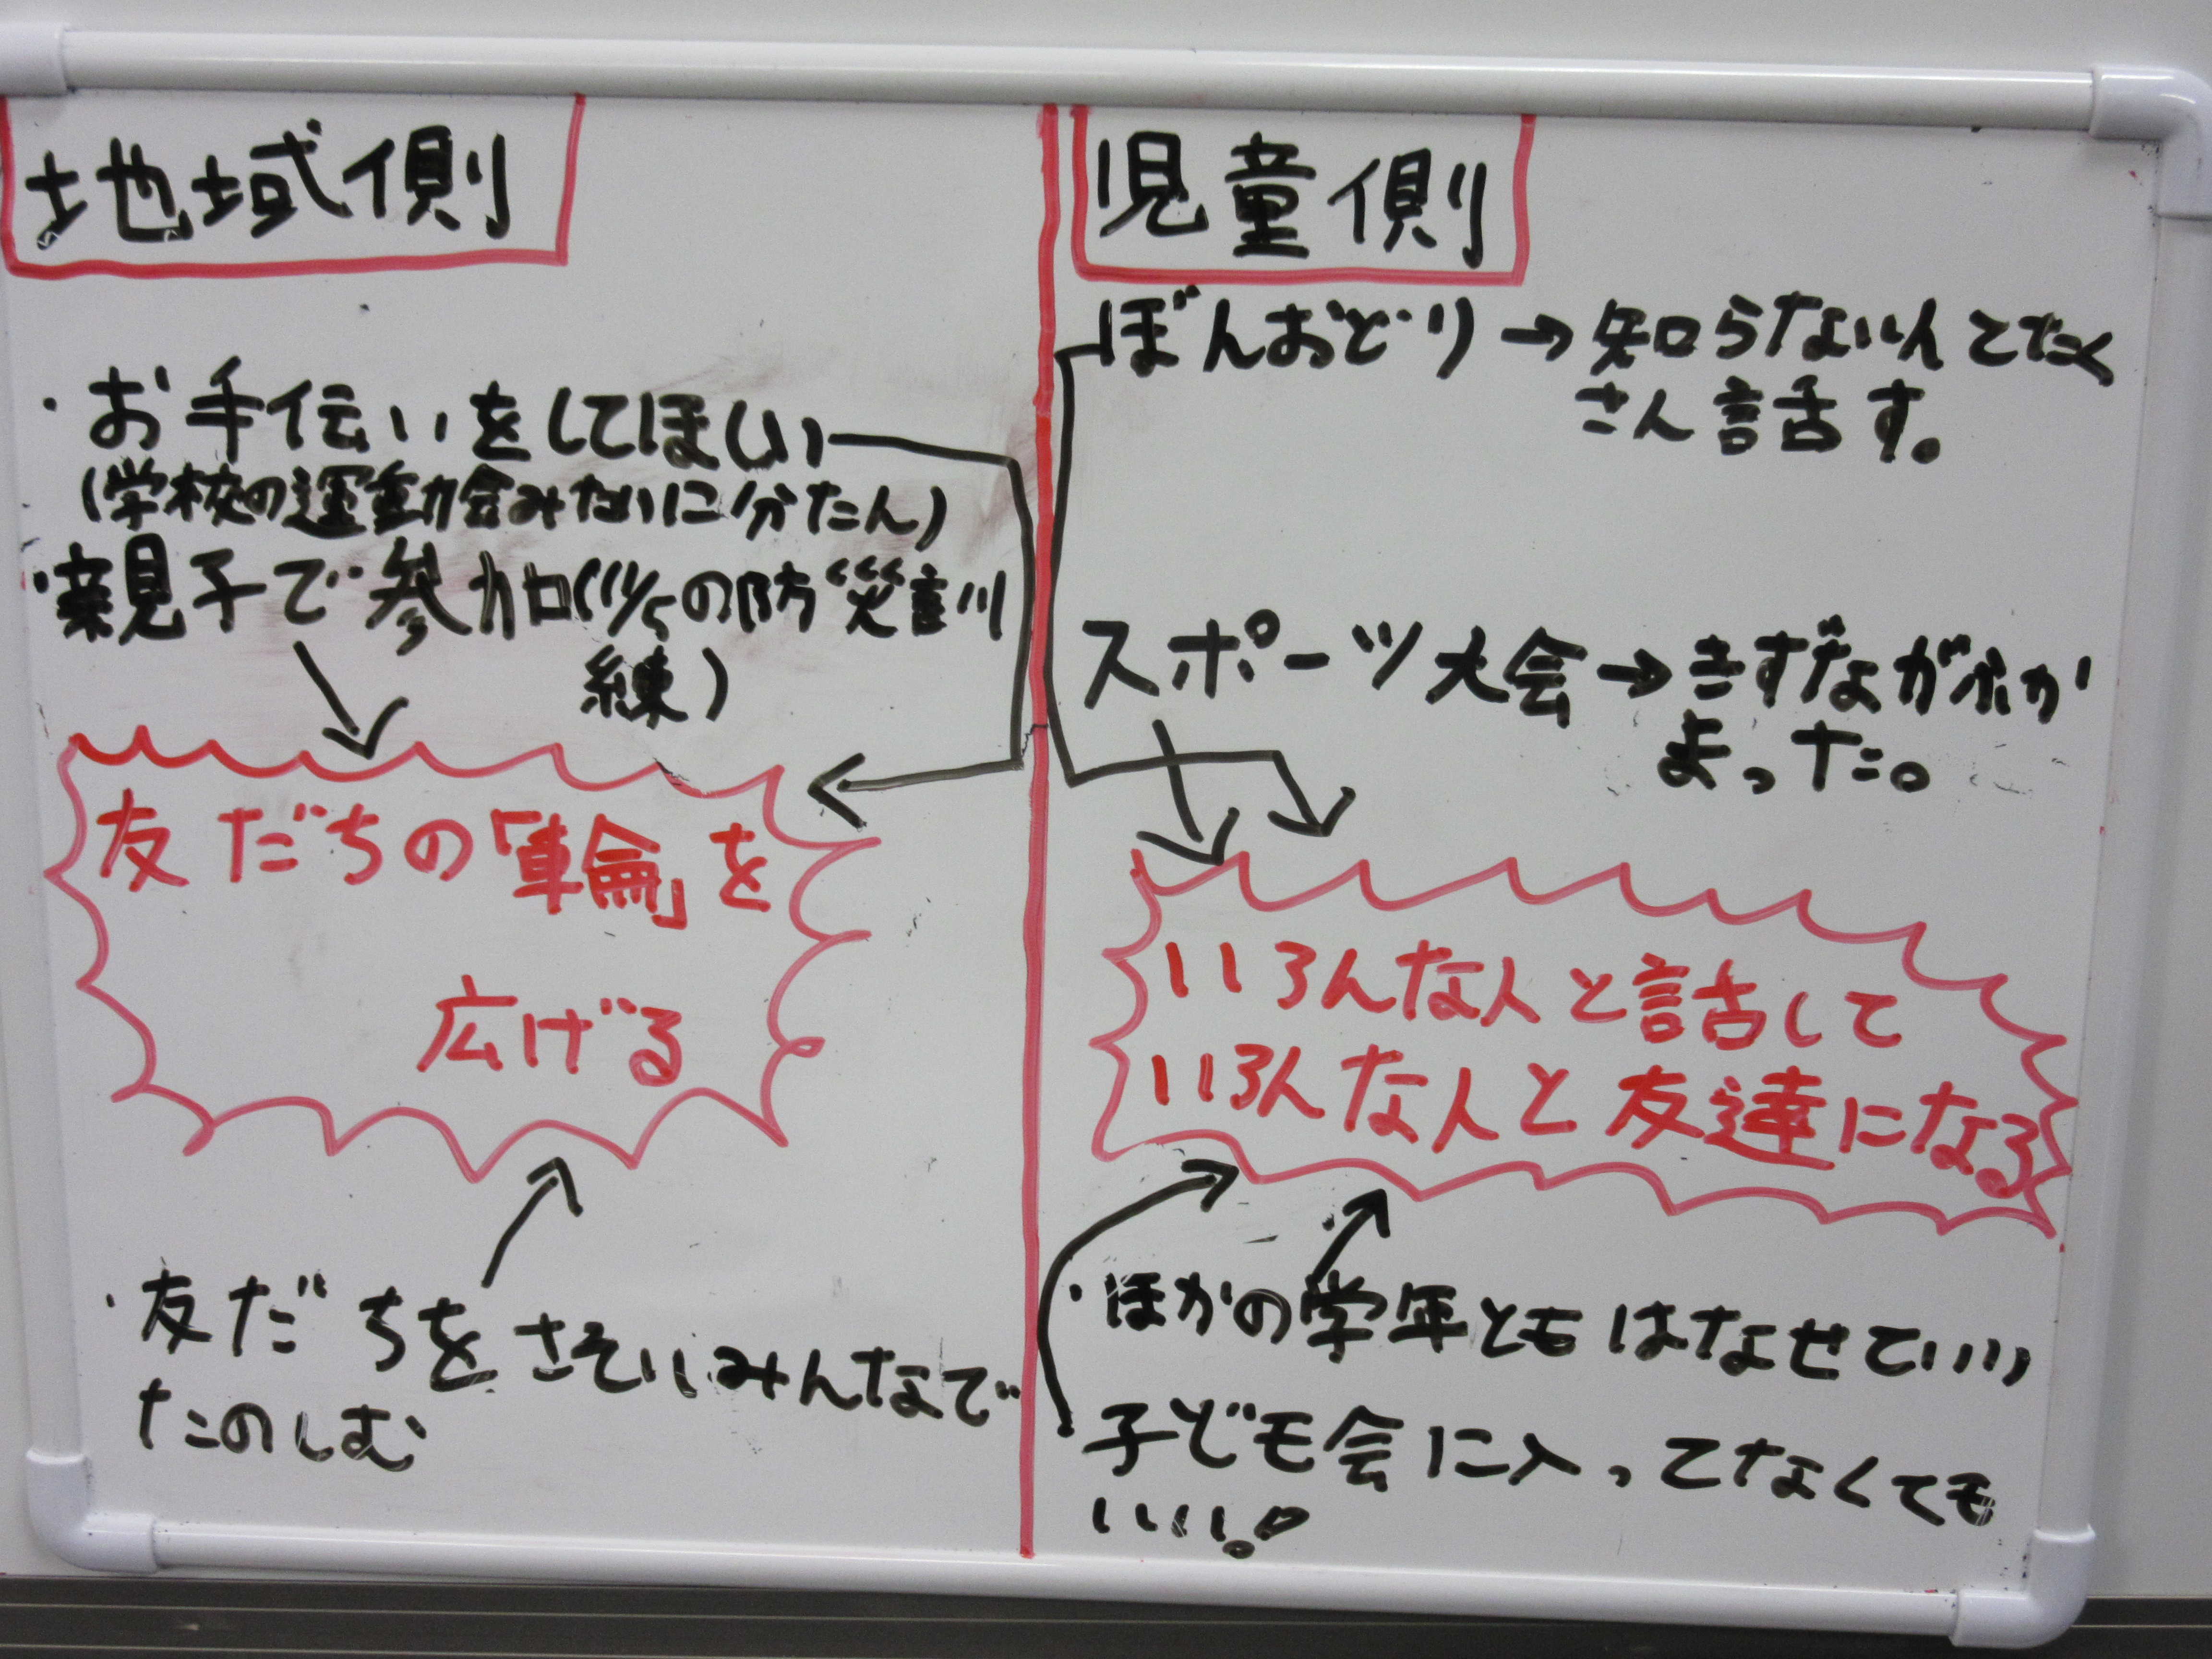 地域側
・お手伝いをしてほしい
(学校の運動会みたいに分たん)
・親子で参加(11/5の防災訓
練)
友だちの「輪」を
広げる
・友だちをさそいみんなで
たのしむ
児童側
ぼんおどり→知らない人とたく
さん話す。
スポーツ大会→きずながふか
まった。
いろんな人と話して
いろんな人と友達になる
・ほかの学年ともはなせていい
子ども会に入ってなくても
いい!